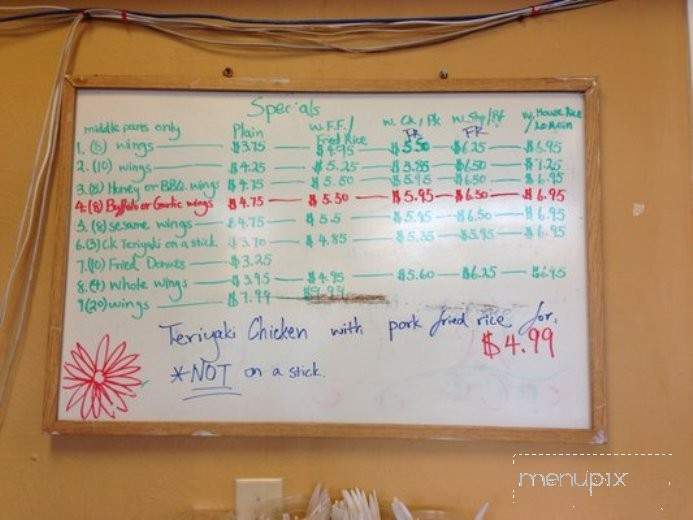 Specials
middle parts only Plain w. F.F./ Fried Rice w. Ck/Pk FR w. Shp/Bf FR w. House Rice / Lo Mein
1. (8) wings $3.75 $4.95 $5.50 $6.25 $6.95
2. (10) wings $4.25 $5.25 $5.85 $6.50 $7.25
3. (8) Honey or B.B.Q. wings $4.75 $5.50 $5.95 $6.50 $6.95
4. (8) Buffalo or Garlic wings $4.75 $5.50 $5.95 $6.50 $6.95
5. (8) Sesame wings $4.75 $5.5 $5.95 $6.50 $6.95
6. (3) Ck Teriyaki on a stick $3.70 $4.85 $5.35 $5.95 $6.95
7. (10) Fried Donuts $3.25
8. (4) Whole wings $3.95 $4.95 $5.60 $6.25 $6.95
9 (20) wings $7.99 $9.99
Teriyaki Chicken with pork fried rice for.
$4.99
*NOT on a stick.
menupix